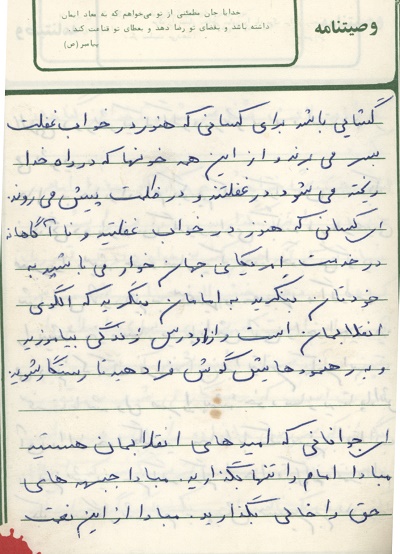 وصیتنامه
خدایا جان مطمئنی از تو می‌خواهم که به معاد ایمان
داشته باشد و بقضای تو رضا دهد و بعطای تو قناعت کند.
پیامبر (ص)
گشایی باشد برای کسانی که هنوز در خواب غفلت
بسر می برند و از این همه خونها که در راه خدا
ریخته می شود در غفلتند و در ظلمت پیش می روند.
ای کسانی که هنوز در خواب غفلتید و نا آگاهانه
در خدمت امریکای جهان خوار می باشید به
خودتان بنگرید به امامتان بنگرید که الگوی
انقلابمان است و از او درس زندگی بیاموزید
و به رهنمودهایش گوش فرا دهید تا رستگار شوید.
ای جوانانی که امیدهای انقلابمان هستید
مبادا امام را تنها بگذارید. مبادا جبهه های
حق را خالی بگذارید. مبادا از این نعمت